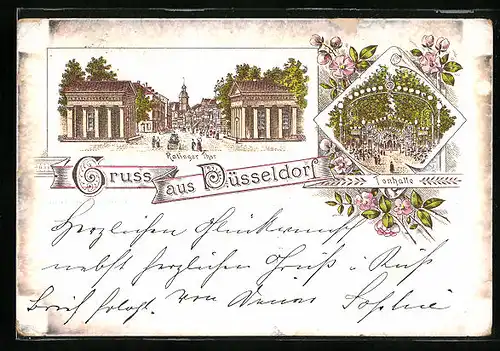 Ratinger Thor
Gruss aus Düsseldorf
Tonhalle
Herzlichen Glückwunsch
nebst herzlichen Gruß u. Kuß
Brief folgt. von
Sophie